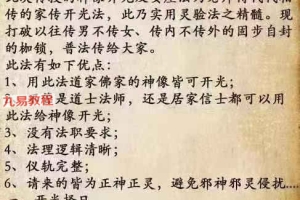 的家传开光法，此乃实用灵脸法之精髓。现
打破以往传男不传女、传内不传外的固步自封
的枷锁，普法传给大家。
此法有如下优点：
1、用此法道家佛家的神像皆可开光；
是道士法师，还是居家信士都可以用
此法给神像开光；
3、没有法职要求；
4、法理逻辑清晰；
5、仪轨完整；
6、请来的皆为正神正灵，避免邪神邪灵侵扰....
九易教程